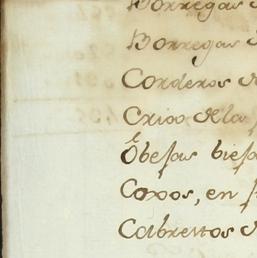 Borregas d
Borregas d
Corderos d
Crias de la
Obejas biejas
Coxos, en
Cabrettos d